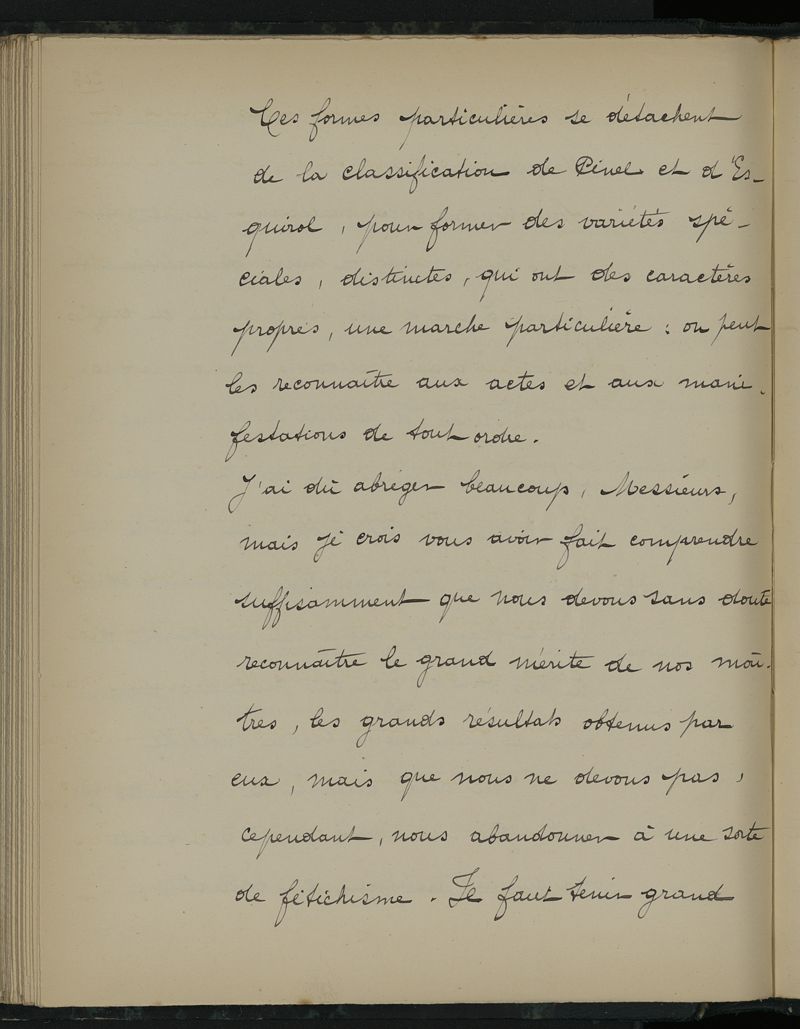 Ces formes particulières se détachent
de la classification de Pinel et d'Es-
quirol, pour former des variétés spé-
ciales, distinctes, qui ont des caractères
propres, une marche particulière : on peut
les reconnaître aux actes et aux mani-
festations de tout ordre.
J'ai dû abréger beaucoup, Messieurs,
mais je crois vous avoir fait comprendre
suffisamment que nous devons sans doute
reconnaître le grand mérite de nos maî-
tres, les grands résultats obtenus par
eux, mais que nous ne devons pas,
cependant, nous abandonner à une sorte
de fétichisme. Il faut tenir grand